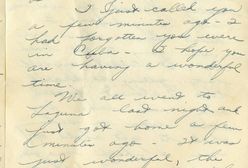 I just called you
a few minutes ago - I
had forgotten you were
in Cuba - I hope you
are having a wonderful
time.
We all went to
Laguna last night and
just got home a few
minutes ago - It was
just wonderful, the